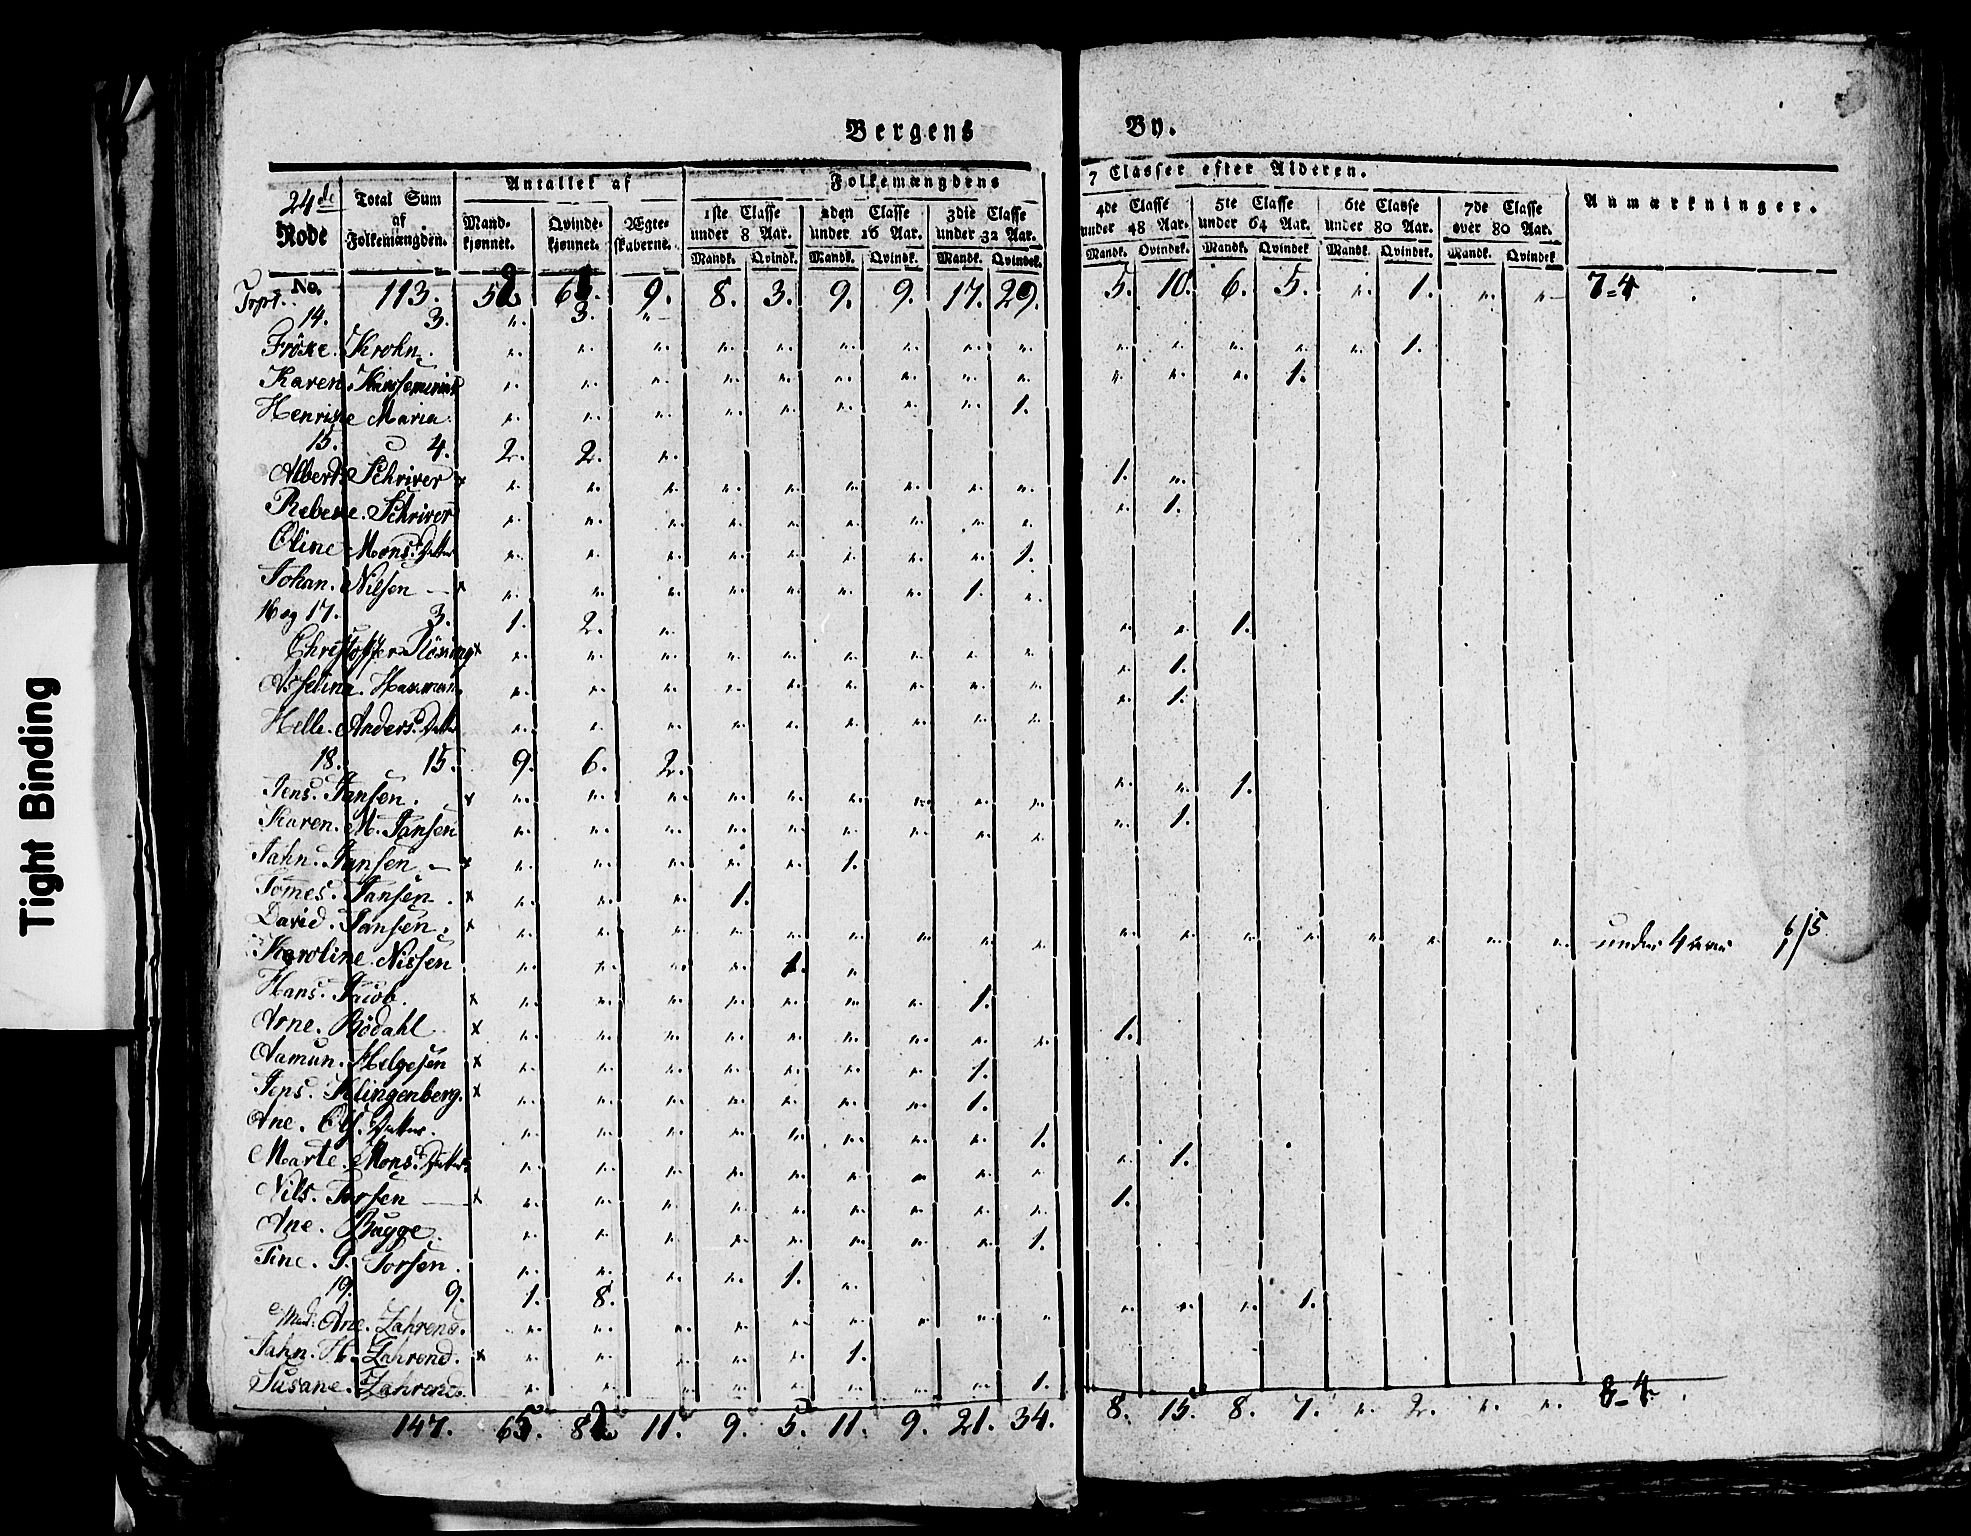 Tight Binding
Bergens By.
24de Rode No. | Total Sum af Folkemængden. | Antallet af Mandkjønnet. | Qvindekjønnet. | Ægteskaberne. | Folkemængdens 7 Classer efter Alderen. | Anmærkninger.
1ste Classe under 8 Aar. | 2den Classe under 16 Aar. | 3die Classe under 32 Aar. | 4de Classe under 48 Aar. | 5te Classe under 64 Aar. | 6te Classe under 80 Aar. | 7de Classe over 80 Aar.
Mandk. Qvindek. Mandk. Qvindek. Mandk. Qvindek. Mandk. Qvindek. Mandk. Qvindek. Mandk. Qvindek. Mandk. Qvindek.
Trpt. 113. 9. 8. 3. 9. 9. 17. 29. 5. 10. 6. 5. " 1. " " 7=4
14. 3. " 3. "
Fröke. Krohn. " " " " " " " " " " " " " " 1.
Karen. " " " " " " " " " " " " 1.
Henrike Maria. " " " " " " " " 1.
15. 4. 2. 2. "
Albert. Schriver × " " " " " " " " " 1. "
Rebeke. Schriver " " " " " " " " " " 1.
Oline Mons. Datter " " " " " " " " 1.
Johan. Nilsen — × " " " " " " " 1. "
16 og 17. 3. 1. 2. "
Christoffer Rösing × " " " " " " " " " " " 1.
Asselina. " " " " " " " " " " 1.
Helle. Anders. Datter " " " " " " " " " " 1.
18. 15. 9. 6. 2.
Jens. Jansen. × " " " " " " " " " " " 1.
Karen. M. Jansen " " " " " " " " " " 1.
Jahn. Jansen. — × " " " " " 1.
Tomes. Jansen. × " " " 1.
David. Jansen. × " " " " " " " " " " " " " " " " " under 4 6/5
Karoline Nissen " " " " 1. "
Hans. Jacob. × " " " " " " " 1.
Arne. Rödahl × " " " " " " " " " 1.
Aamun. Helgesen × " " " " " " " 1.
Jens. Klingenberg. × " " " " " " " 1.
Ane. Ols. Datter. " " " " " " " " 1.
Marte. Mons. Datter " " " " " " " " " " 1.
Nils. Torsen — × " " " " " " " " " 1.
Ane. Bugge. " " " " " " " " 1.
Tine. T. Torsen. " " " " 1. "
19. 9. 1. 8.
Mad. Ane. Zahrend. " " " " " " " " " " " " 1.
Jahn. H. Zahrend. × " " " " " 1.
Susane. Zahrend. " " " " " " " " 1.
147. 11. 9. 5. 11. 9. 21. 34. 8. 15. 8. 7. " 2. " " 8=4